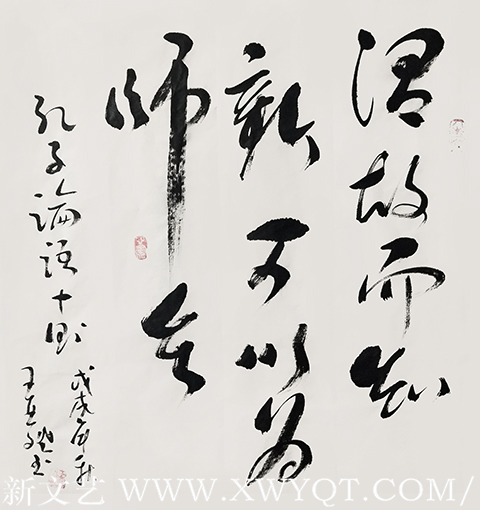 温故而知
新可以为
师矣
孔子论语十则
戊戌年秋
新文艺 WWW.XWYQT.COM/